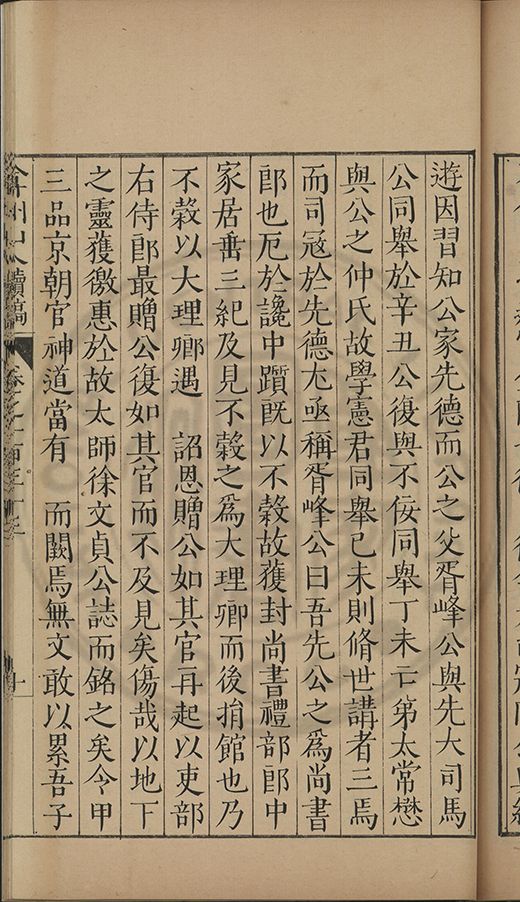 遊因習知公家先德而公之父胥峰公與先大司馬
公同舉於辛丑公復與不佞同舉丁未亡弟太常懋
與公之仲氏故學憲君同舉己未則脩世講者三焉
而司冠於先德尤亟稱胥峰公曰吾先公之為尚書
郎也厄於讒中躓既以不穀故獲封尚書禮部郎中
家居垂三紀及見不穀之爲大理卿而後捐館也乃
不穀以大理卿遇 詔恩贈公如其官再起以吏部
右侍郎最贈公復如其官而不及見矣傷哉以地下
之靈獲徼惠於故太師徐文貞公誌而銘之矣今甲
三品京朝官神道當有 而闕焉無文敢以累吾子
弇州山人續稿 卷之一百三十